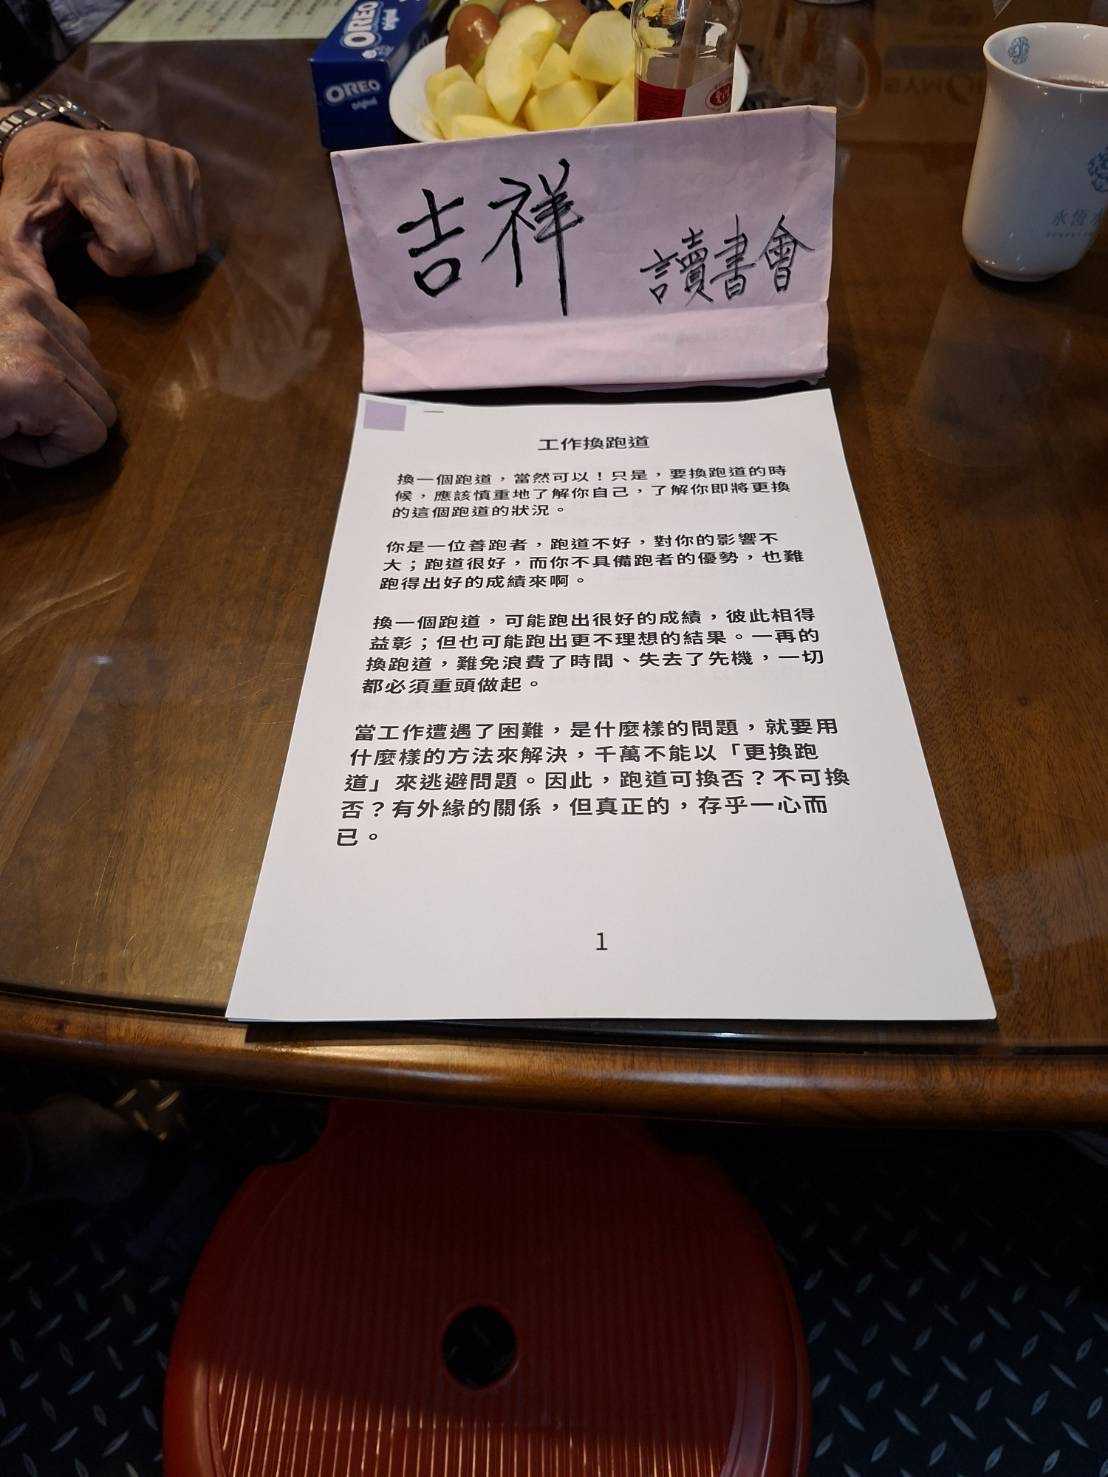 OREO
Original
OREO
Original
吉祥
讀書會
永恆
工作換跑道
換一個跑道，當然可以！只是，要換跑道的時
候，應該慎重地了解你自己，了解你即將更換
的這個跑道的狀況。
你是一位善跑者，跑道不好，對你的影響不
大；跑道很好，而你不具備跑者的優勢，也難
跑得出好的成績來啊。
換一個跑道，可能跑出很好的成績，彼此相得
益彰；但也可能跑出更不理想的結果。一再的
換跑道，難免浪費了時間、失去了先機，一切
都必須重頭做起。
當工作遭遇了困難，是什麼樣的問題，就要用
什麼樣的方法來解決，千萬不能以「更換跑
道」來逃避問題。因此，跑道可換否？不可換
否？有外緣的關係，但真正的，存乎一心而
已。
1